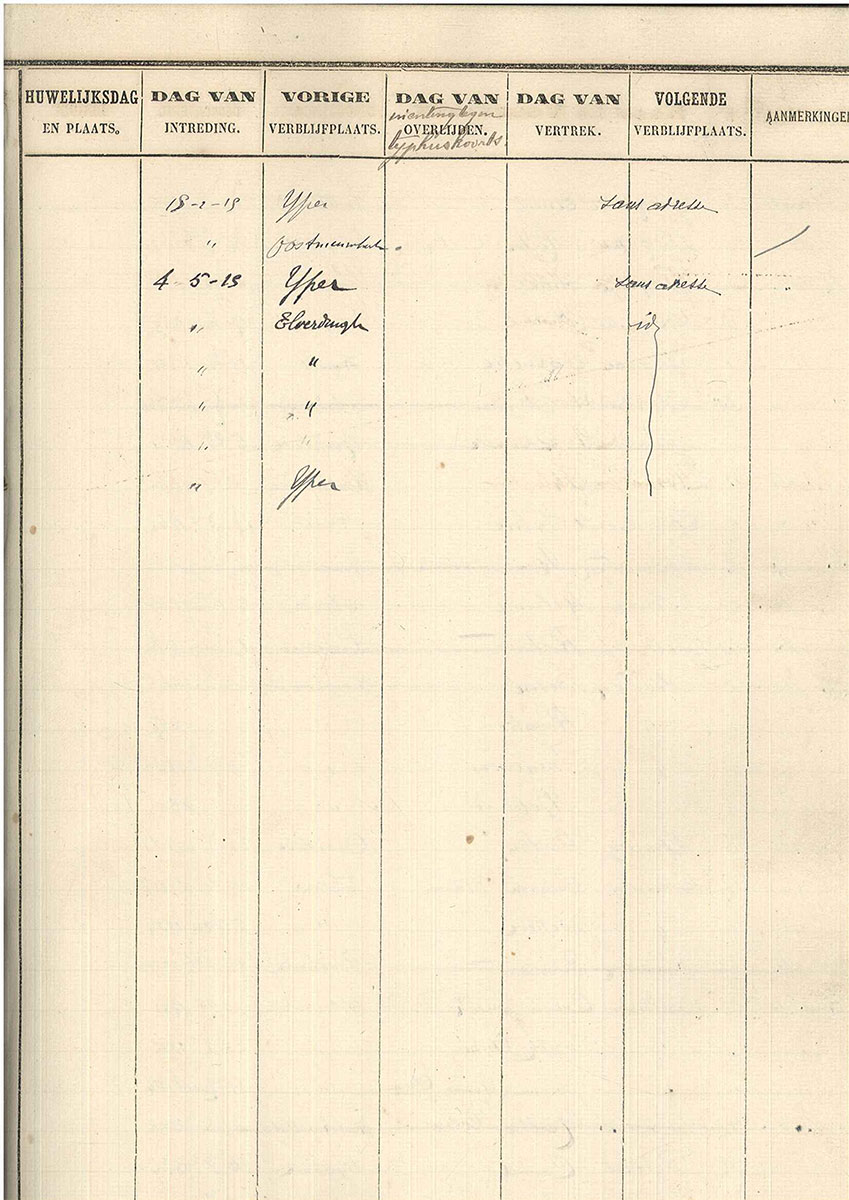 HUWELIJKSDAG EN PLAATS. DAG VAN INTREDING. VORIGE VERBLIJFPLAATS. DAG VAN OVERLIJDEN. DAG VAN VERTREK. VOLGENDE VERBLIJFPLAATS. AANMERKINGEN
inenting tegen
typhuskoorts.
Yper sans adresse
"
4-5-15 Yper sans adresse
" Elverdinghe id
" "
" "
" "
" Yper